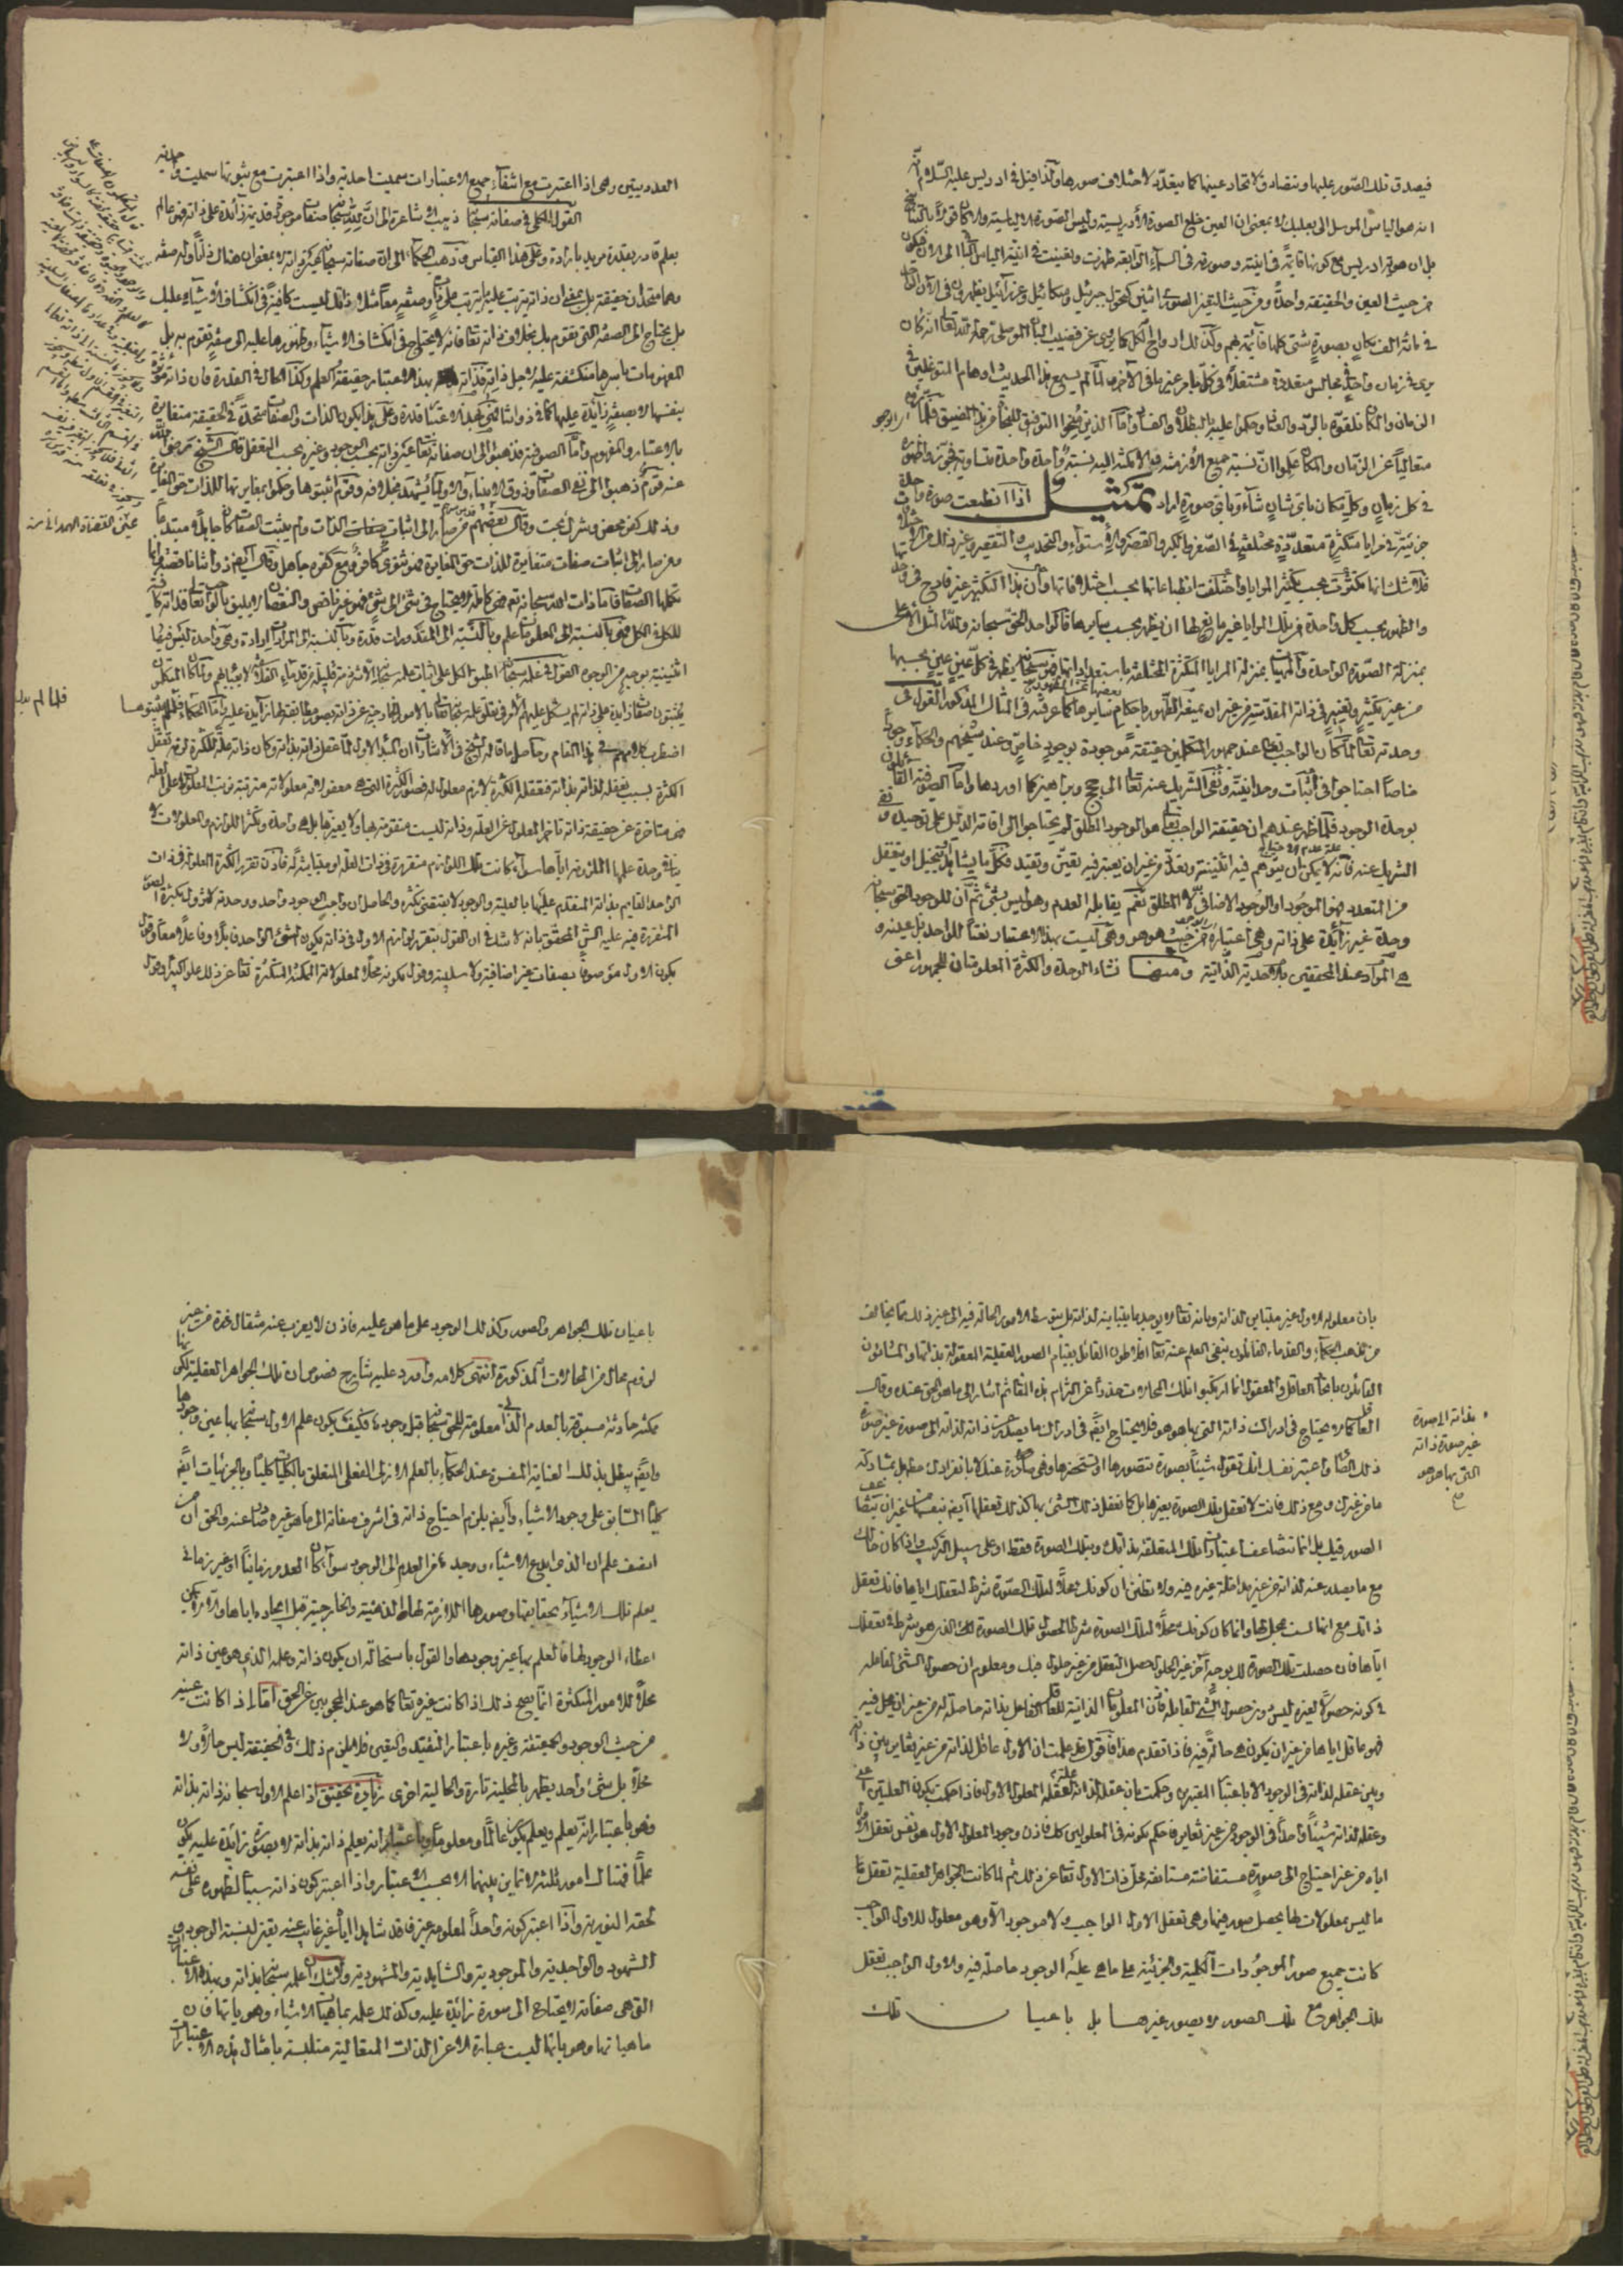 فيصدق تلك الصور عليها وتتصادق لاتحاد عينها كما يتعدد لاختلاف صورها ولذا قيل في ادريس عليه السلام
انه هو الياس المرسل الى بعلبك لا بمعنى ان العين خلع الصورة الادريسية ولبس الصورة الالياسية والا كان قولا بالتناسخ
بل ان هوية ادريس مع كونها قائمة في انيته وصورته في السماء الرابعة ظهرت وتعينت في انية الياس الباقي الى الان فيكون
من حيث العين والحقيقة واحدة ومن حيث التعين الصوري اثنين كنحو جبرئيل وميكائيل وعزرائيل يظهرون في الان الواحد
في مائة الف مكان بصورة شتى كلها قائمة بهم وكذلك ارواح الكمل كما يروى عن قضيب البان الموصلي رحمه الله تعالى انه كان
يرى في زمان واحد في مجالس متعددة مشتغلا في كل بامر غير ما في الآخر ولما لم يسع هذا الحديث اوهام المتوغلين في
الزمان والمكان تلقوه بالرد والعناد وحكموا عليه بالبطلان والفساد واما الذين منحوا التوفيق للنجاة من هذا المضيق فلما راوه
متعاليا عن الزمان والمكان علموا ان نسبة جميع الازمنة والامكنة اليه نسبة واحدة متساوية فجوزوا ظهوره
في كل زمان وكل مكان باي شان شاء وباي صورة اراد تمثيل اذا انطبعت صورة واحدة
جزئية في مرايا متكثرة متعددة مختلفة في الصغر والكبر والطول والقصر والاستواء والتحديب والتقعير وغير ذلك من الاختلافات
فلا شك انها تكثرت بحسب تكثر المرايا واختلفت انطباعاتها بحسب اختلافاتها وان هذا التكثر غير قادح في وحدتها
والظهور بحسب كل واحدة من تلك المرايا غير مانع لها ان يظهر بحسب سايرها فالواحد الحق سبحانه ولله المثل الاعلى
بمنزلة الصورة الواحدة والماهيات بمنزلة المرايا المتكثرة المختلفة باستعداداتها فهو سبحانه يظهر في كل عين عين بحسبها
من غير تكثر وتغير في ذاته المقدسة من غير ان يمنعه الظهور باحكام بعضها عن الظهور باحكام سايرها كما عرفته في المثال المذكور القول في
وحدته تعالى لما كان الواجب تعالى عند جمهور المتكلمين حقيقة موجودة بوجود خاص وعند شيخهم والحكماء وجودا
خاصا احتاجوا في اثبات وحدانيته ونفي الشريك عنه تعالى الى حجج وبراهين كما اوردها واما الصوفية القائلون
بوحدة الوجود فلما ظهر عندهم ان حقيقة الواجب تعالى هو الوجود المطلق لم يحتاجوا الى اقامة الدليل على توحيده ونفي
الشريك عنه فانه لا يمكن ان يتوهم فيه اثنينية وتعدد من غير ان يعتبر فيه تعين وتقيد فكل ما يشاهد او يتخيل او يتعقل
من المتعدد فهو الموجود او الوجود الاضافي لا المطلق نعم يقابله العدم وهو ليس بشيء ثم ان للوجود الحق سبحانه
وحدة غير زائدة على ذاته وهي اعتباره من حيث هو هو وهي ليست بهذا الاعتبار نعتا للواحد بل عينه وهو
هي المراد عند المحققين بالاحدية الذاتية ومنها تنشاء الوحدة والكثرة المعلومتان للجمهور اعني
العدديتين وهي اذا اعتبرت مع انتفاء جميع الاعتبارات سميت احدية واذا اعتبرت مع ثبوتها سميت واحدية
القول الكلي في صفاته سبحانه ذهبت الاشاعرة الى ان لله سبحانه صفات موجودة قديمة زائدة على ذاته فهو عالم
بعلم قادر بقدرة مريد بارادة وعلى هذا القياس وذهب الحكماء الى ان صفاته سبحانه عين ذاته لا بمعنى ان هناك ذاتا وله صفة
وهما متحدان حقيقة بل بمعنى ان ذاته يترتب عليه ما يترتب على ذات وصفة معا مثلا ذاتك ليست كافية في انكشاف الاشياء عليك
بل يحتاج الى الصفة التي تقوم بك بخلاف ذاته تعالى فانه لا يحتاج في انكشاف الاشياء وظهورها عليه الى صفة تقوم به بل
المفهومات باسرها منكشفة عليه لاجل ذاته فذاته بهذا الاعتبار حقيقة العلم وكذا الحال في القدرة فان ذاته مؤثرة
بنفسها لا بصفة زائدة عليها كما في ذواتنا فهي بهذا الاعتبار قدرة وعلى هذا يكون الذات والصفات متحدة في الحقيقة متغايرة
بالاعتبار والمفهوم واما الصوفية فذهبوا الى ان صفاته تعالى عين ذاته بحسب الوجود وغيره بحسب التعقل قال الشيخ رضي الله
عنه قوم ذهبوا الى نفي الصفات وذوق الانبياء والاولياء يشهد بخلافه وقوم اثبتوها وحكموا بمغايرتها للذات حق المغايرة
وذلك كفر محض وشرك بحت وقال بعضهم قدس سره من صار الى اثبات الذات ولم يثبت الصفات كان جاهلا مبتدعا
ومن صار الى اثبات صفات متغايرة للذات حق المغايرة فهو ثنوي كافر ومع كفره جاهل وقال ايضا ذواتنا ناقصة وانما
تكملها الصفات فاما ذات الله سبحانه فهي كاملة لا يحتاج في شيء الى شيء فهو غير ناقص والنقصان لا يليق بالواجب تعالى فذاته كافية
للكل في الكل فهي بالنسبة الى المعلومات علم وبالنسبة الى المقدورات قدرة وبالنسبة الى المرادات ارادة وهي واحدة ليس فيها
اثنينية بوجه من الوجوه القول في علمه سبحانه اطبق الكل على اثبات علمه سبحانه الا شرذمة قليلة من قدماء الفلاسفة لا يعبأ بهم ولما كان المتكلمون
يثبتون صفات زائدة على ذاته لم يشكل عليهم الامر في تعلق علمه سبحانه بالامور الخارجية عن ذاته بصور مطابقة لها زائدة عليه واما الحكماء فلما لم يثبتوها
اضطرب كلامهم في هذا المقام وحاصل ما قاله الشيخ في الاشارات ان المبدأ الاول لما عقل ذاته بذاته وكان ذاته علة للكثرة لزمه تعقل
الكثرة بسبب تعقله لذاته بذاته فتعقله للكثرة لازم معلول له فصور الكثرة التي هي معقولاته معلولاته مترتبة ترتب المعلولات على العلة
فهي متاخرة عن حقيقة ذاته تاخر المعلول عن العلة وذاته ليست متقومة بها ولا بغيرها بل هي واحدة وتكثر اللوازم والمعلولات لا
ينافي وحدة علتها الملزومة اياها سواء كانت تلك اللوازم متقررة في ذات العلة او مباينة له فاذن تقرر الكثرة المعلولة في ذات
الواحد القايم بذاته المتقدم عليها بالعلية والوجود لا يقتضي تكثره والحاصل ان واجب الوجود واحد ووحدته لا تزول بكثرة الصور
المتقررة فيه عليه الش المحقق بانه لا شك في ان القول بتقرر لوازم الاول في ذاته يكون الشيء الواحد قابلا وفاعلا معا وقول
بكون الاول موصوفا بصفات غير اضافية ولا سلبية وقول بكونه محلا لمعلولاته الممكنة المتكثرة تعالى عن ذلك علوا كبيرا وقول
عين القضاة الهمداني
بان معلوله الاول غير مباين لذاته وبانه تعالى لا يوجد ما يباينه لذاته بل بتوسط الامور الحالة فيه الى غير ذلك مما يخالف
من مذهب الحكماء والقدماء القائلون بنفي العلم عنه تعالى افلاطون القائل بقيام الصور العقلية المعقولة بذاتها والمشائون
القائلون باتحاد العاقل والمعقول انما ارتكبوا تلك المحالات حذرا عن التزام هذه المعاني ثم اشار الى ما هو الحق عنده وقال
العاقل كما لا يحتاج في ادراك ذاته التي بها هو هو فلا يحتاج ايضا في ادراك ما يصدر عن ذاته لذاته الى صورة غير صورة
ذلك الصادر واعتبر من نفسك انك تعقل شيئا بصورة تتصورها او تستحضرها وهي صادرة عنك لا بانفرادك مطلقا بل بمشاركة
ما من غيرك ومع ذلك فانت لا تعقل تلك الصورة بغيرها بل كما تعقل ذلك الشيء بها كذلك تعقلها ايضا بنفسها من غير ان يتضاعف
الصور فيك بل انما تتضاعف اعتباراتك المتعلقة بذاتك وبتلك الصورة فقط او على سبيل التركيب واذا كان حالك
مع ما يصدر عنك لذاته من غير مداخلة غيره فيه ولا تظنن ان كونك محلا لتلك الصورة شرط لتعقلك اياها فانك تعقل
ذاتك مع انها ليست بمحل لها وانما كان كونك محلا لتلك الصورة شرطا لحصول تلك الصورة لك الذي هو شرط في تعقلك
اياها فان حصلت تلك الصورة لك بوجه آخر غير الحلول حصل التعقل من غير حلول فيك ومعلوم ان حصول الشيء لفاعله
في كونه حصولا لغيره ليس دون حصول الشيء لقابله فان المعلولات الذاتية للعاقل الفاعل بذاته حاصلة له من غير ان يحل فيه
فهو عاقل اياها من غير ان يكون هي حالة فيه فاذا تقدم هذا فاقول قد علمت ان الاول عاقل لذاته من غير تغاير بين ذاته
وبين عقله لذاته في الوجود الا باعتبار المعتبرين وحكمت بان عقله لذاته علة لعقله المعلول الاول فاذا حكمت بكون العلتين اعني
وعقله لذاته شيئا واحدا في الوجود من غير تغاير فاحكم بكونه في المعلولين كذلك فاذن وجود المعلول الاول هو نفس تعقل الاول
اياه من غير احتياج الى صورة مستفاضة مستانفة تحل ذات الاول تعالى عن ذلك ثم لما كانت الجواهر العقلية تعقل ما
ما ليس بمعلولات لها بحصول صور فيها وهي تعقل الاول الواجب ولا موجود الا وهو معلول للاول الواجب
كانت جميع صور الموجودات الكلية والجزئية على ما هي عليه الوجود حاصلة فيه والاول الواجب تعقل
تلك الجواهر مع تلك الصور لا بصور غيرها بل باعيان تلك
بذاته الى صورة
غير صورة ذاته
التي بها هو هو
صح
باعيان تلك الجواهر والصور وكذلك الوجود على ما هو عليه فاذن لا يعزب عنه مثقال ذرة من غير
لزوم محال من المحالات المذكورة انتهى كلامه واورد عليه شارح فصوص ان تلك الجواهر العقلية لكونها
ممكنة حادثة مسبوقة بالعدم الذاتي معلومة للحق سبحانه قبل وجودها فكيف يكون علم الاول سبحانه بها عين وجودها
وايضا يبطل بذلك العناية المفسرة عند الحكماء بالعلم الازلي الفعلي المتعلق بالكليات كليا وبالجزئيات ايضا
كليا السابق على وجود الاشياء وايضا يلزم احتياج ذاته في اشرف صفاته الى ما هو غيره وصادر عنه والحق ان من
انصف علم ان الذي ابدع الاشياء واوجدها من العدم الى الوجود سواء كان العدم زمانيا او غير زماني
يعلم تلك الاشياء بحقايقها وصورها اللازمة لها الذهنية والخارجية قبل ايجاده اياها والا لا يمكن
اعطاء الوجود لها فالعلم بها غير وجودها والقول باستحالة ان يكون ذاته وعلمه الذي هو عين ذاته
محلا للامور المتكثرة انما يصح ذلك اذا كانت غيره تعالى كما هو عند المحجوبين عن الحق اما اذا كانت عينه
من حيث الوجود والحقيقة وغيره باعتبار التقيد والتعين فلا يلزم ذلك وفي الحقيقة ليس حالا ولا
محلا بل شيء واحد يظهر بالمحلية تارة والحالية اخرى زيادة تحقيق اذا علم الاول سبحانه ذاته بذاته
فهو باعتبار انه يعلم ويعلم يكون عالما ومعلوما وباعتبار انه يعلم ذاته بذاته لا بصورة زائدة عليه يكون
علما فهناك امور ثلثة لا تمايز بينها الا بحسب الاعتبار واذا اعتبر كون ذاته سببا لظهوره على نفسه
لحقه النورية واذا اعتبر كونه واجدا لمعلومه غير فاقد شاهدا اياه غير غايب عنه تعين نسبة الوجود و
الشهود والواجدية والموجودية والشاهدية والمشهودية ولا شك ان علمه سبحانه بذاته وبهذه الاعتبارات
التي هي صفاته لا يحتاج الى صورة زائدة عليه وكذلك علمه بماهيات الاشياء وهوياتها فان
ماهياتها وهوياتها ليست عبارة الا عن الذات المتعالية متلبسة بامثال هذه الاعتبارات